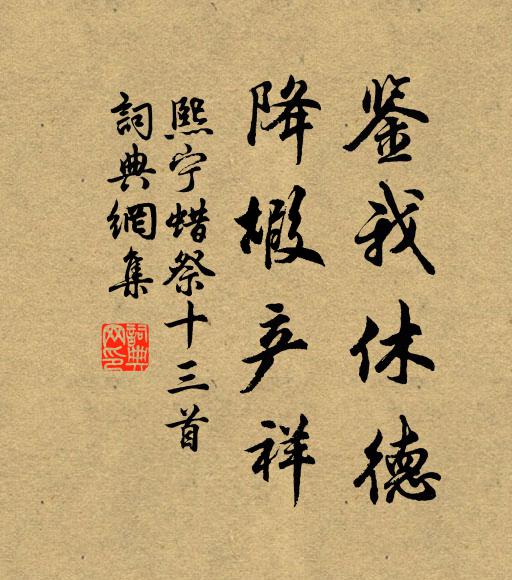 鉴我休德
降嘏产祥
熙宁蜡祭十三首
詞典網集
詞典网印